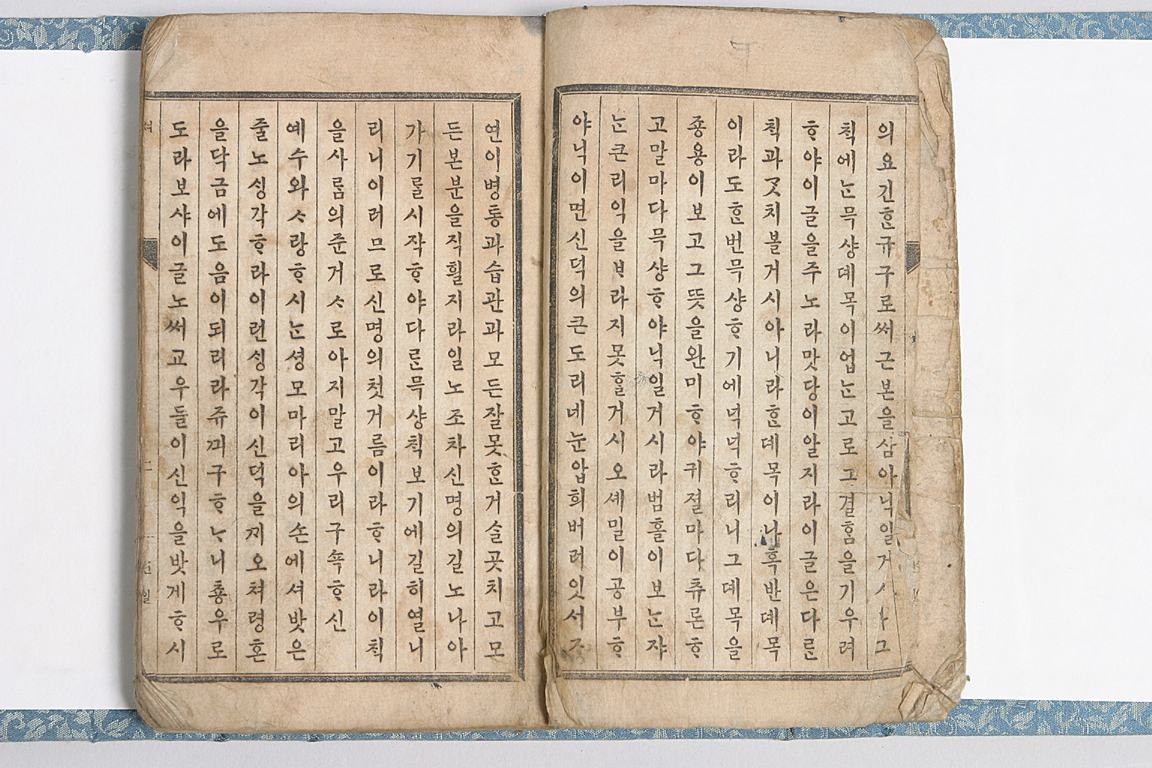 의요긴ᄒᆞᆫ규구로써근본을삼아닉일거
ᄎᆡᆨ에ᄂᆞᆫ믁샹뎨목이업ᄂᆞᆫ고로그결홈을기우려
ᄒᆞ야이글을주노라맛당이알지라이글은다ᄅᆞᆫ
ᄎᆡᆨ과ᄀᆞᆺ치볼거시아니라ᄒᆞᆫ뎨목이나혹반뎨목
이라도ᄒᆞᆫ번믁샹ᄒᆞ기에넉넉ᄒᆞ리니그뎨목을
죵용이보고그ᄯᅳᆺ을완미ᄒᆞ야귀졀마다츄론ᄒᆞ
고말마다믁샹ᄒᆞ야닉일거시라범홀이보ᄂᆞᆫ쟈
ᄂᆞᆫ큰리익을ᄇᆞ라지못ᄒᆞᆯ거시오셰밀이공부ᄒᆞ
야닉이면신덕의큰도리네눈압희버려잇서
연이병통과습관과모든잘못ᄒᆞᆫ거슬곳치고모
든본분을직흴지라일노조차신명의길노나아
가기ᄅᆞᆯ시작ᄒᆞ야다ᄅᆞᆫ믁샹ᄎᆡᆨ보기에길히열니
리니이러므로신명의첫거름이라ᄒᆞ니라이ᄎᆡᆨ
을사ᄅᆞᆷ의준거ᄉᆞ로아지말고우리구쇽ᄒᆞ신
예수와ᄉᆞ랑ᄒᆞ시ᄂᆞᆫ셩모마리아의손에셔밧은
줄노ᄉᆡᆼ각ᄒᆞ라이런ᄉᆡᆼ각이신덕을ᄭᆡ오쳐령혼
을닥금에도음이되리라쥬ᄭᅴ구ᄒᆞᄂᆞ니춍우로
도라보샤이글노써교우들이신익을밧게ᄒᆞ시